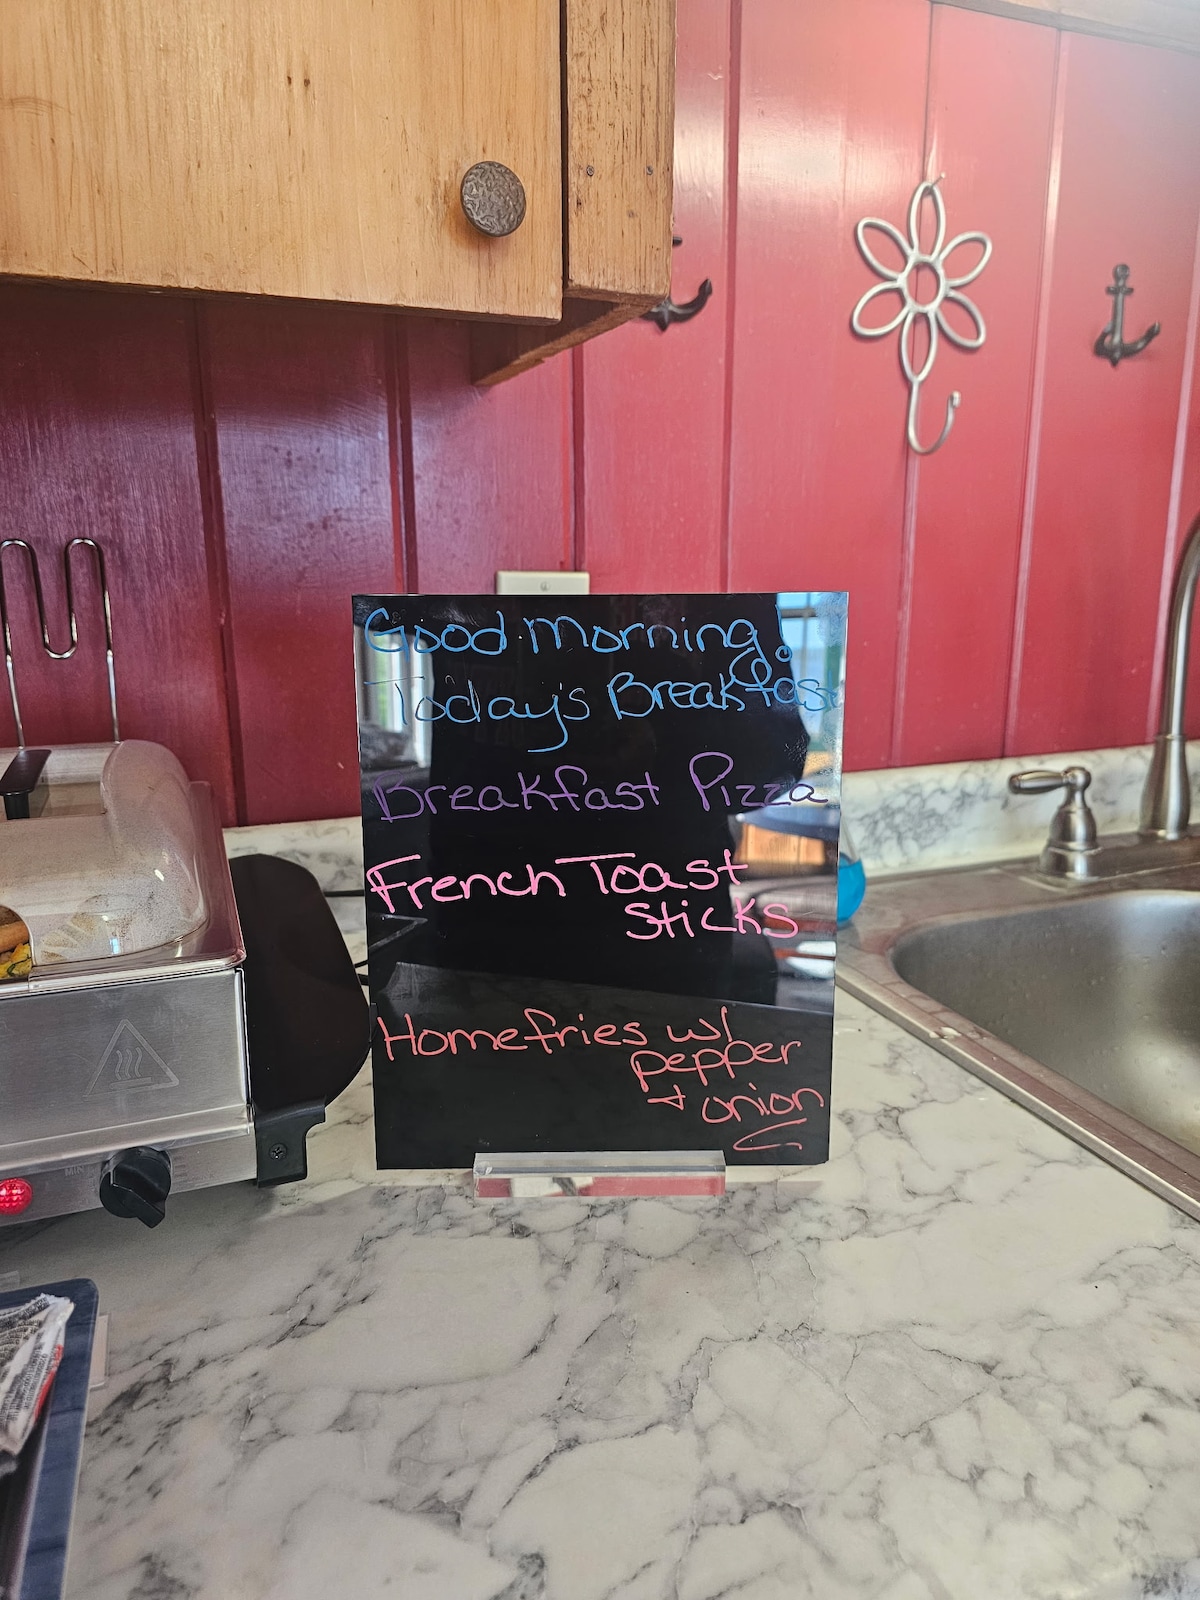 Good Morning!
Today's Breakfast
Breakfast Pizza
French Toast
Sticks
Homefries w/
pepper
+ onion